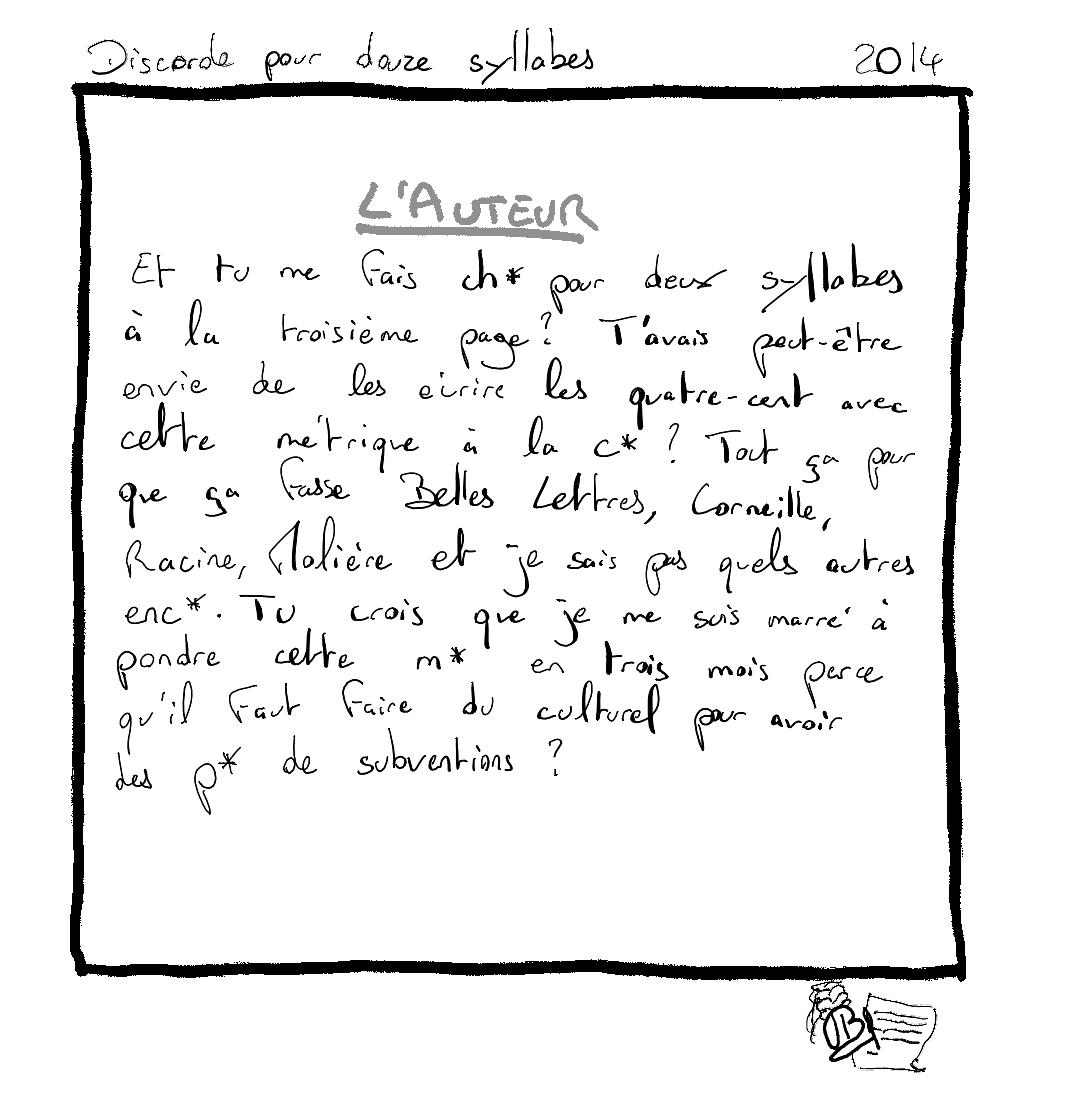 Discorde pour douze syllabes 2014
L'AUTEUR
Et tu me fais ch* pour deux syllabes
à la troisième page? T'avais peut-être
envie de les écrire les quatre-cent avec
cette métrique à la c* ? Tout ça pour
que ça fasse Belles Lettres, Corneille,
Racine, Molière et je sais pas quels autres
enc*. Tu crois que je me suis marré à
pondre cette m* en trois mois parce
qu'il faut faire du culturel pour avoir
des p* de subventions ?